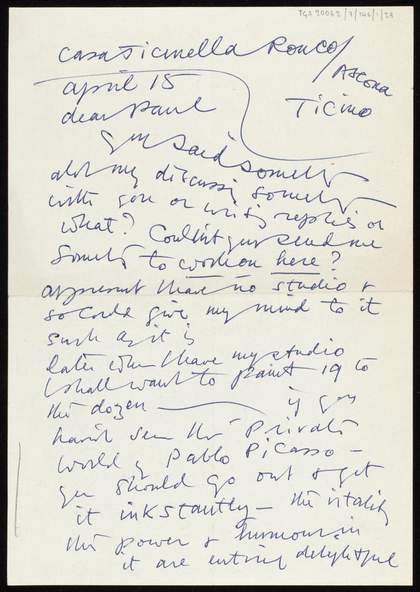 TGA 20062/
Casa Ticinella Ronco/
Ascona
april 15
Ticino
dear Paul
you said somethg
abt my discussg somethg
with you or writg replies or
what? Couldnt you send me
Somethg to work on here?
at present I have no studio &
so could give my mind to it
such as it is
later when I have my studio
I shall want to paint 19 to
the dozen — if you
havnt seen the Private
World of Pablo Picasso —
you should go out & get
it inkstantly — the vitality
the power & humour in
it are entirely delightful